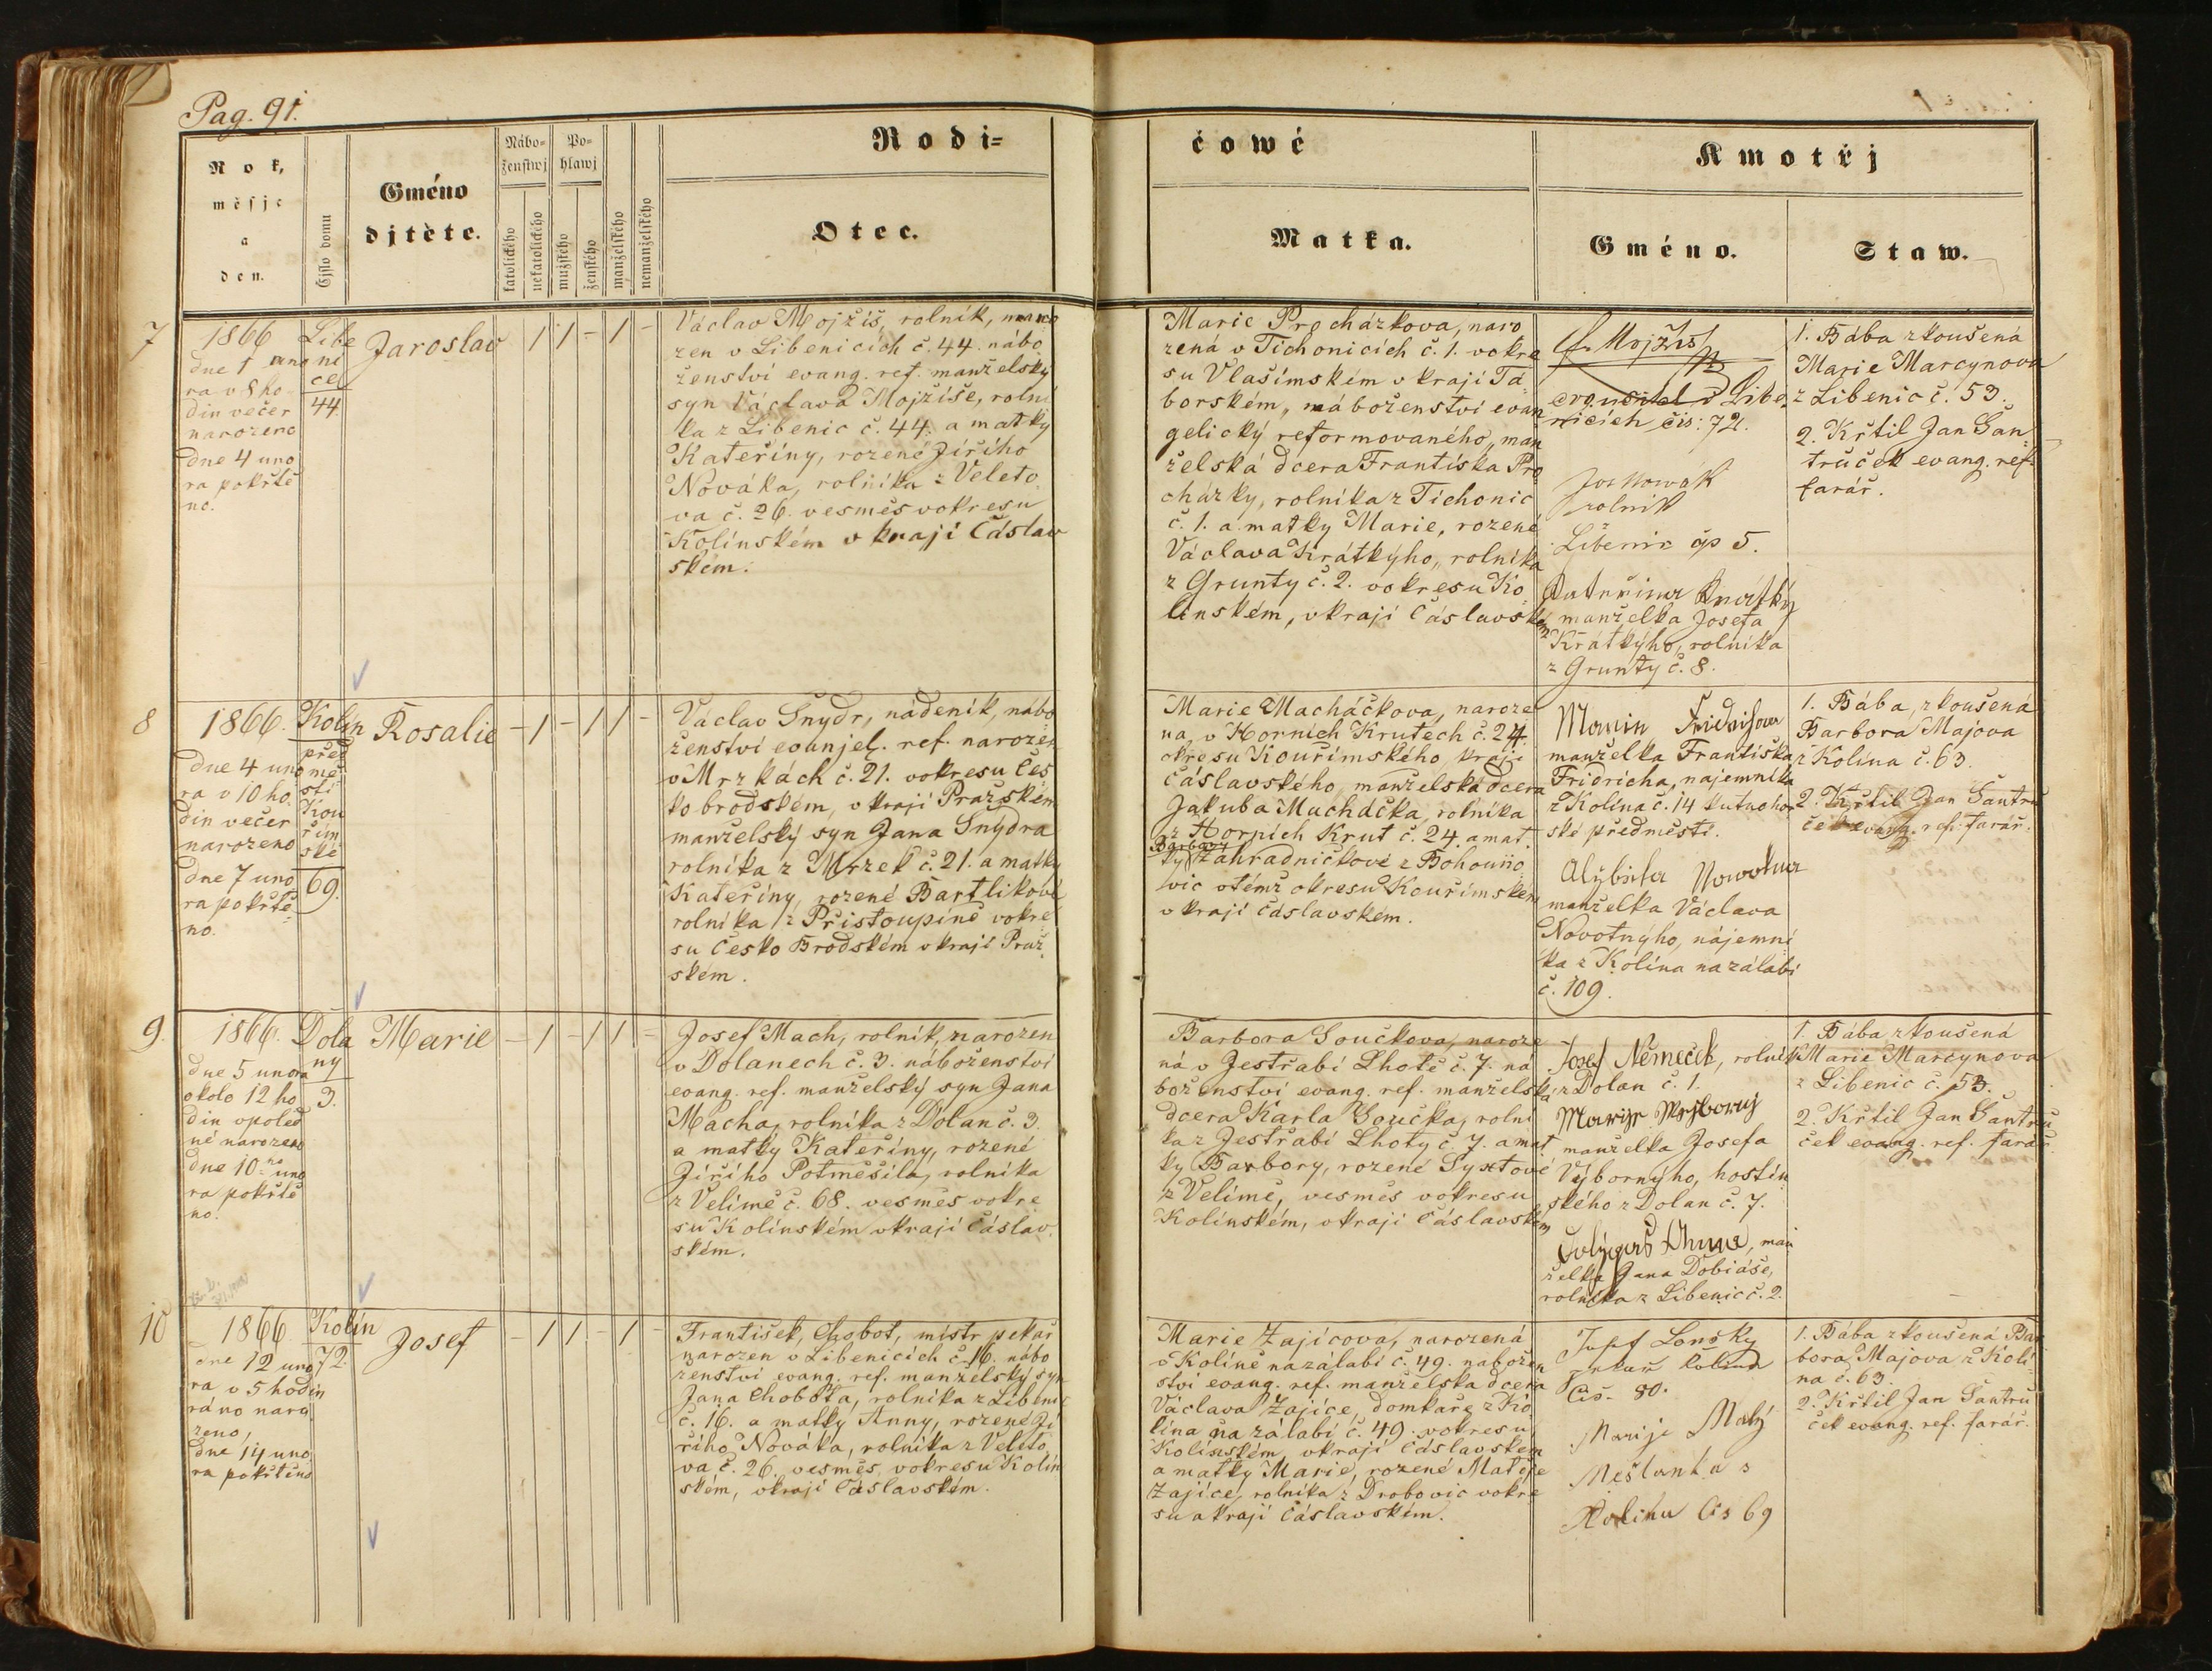 Pag. 91.
Rok,
měsjc
a
den.
Čjslo domu
Gméno
djtěte.
Nábo=
ženstwj
katolického
nekatolického
Po=
hlawj
mužského
ženského
manželského
nemanželského
Rodi=
Otec.
čowé
Matka.
Kmotřj
Gméno.
Staw.
7
1866
dne 1 úno
ra v 8 ho
din večer
narozeno
dne 4 úno
ra pokřtě
no.
Libe
ni
ce
44.
Jaroslav
1 1 - 1 -
Václav Mojžíš, rolník, naro
zen v Libenicích č. 44. nábo
ženství evang. ref. manželský
syn Václava Mojžíše, rolní
ka z Libenic č. 44. a matky
Kateřiny, rozené Jiřího
Nováka, rolníka z Veleto
va č. 26. vesměs v okresu
Kolínském v kraji Čáslav
ském.
Marie Procházkova, naro
zená v Tichonicích č. 1. v okre
su Vlašimském v kraji Tá
borském, náboženství evan
gelický reformovaného, man
želská dcera Františka Pro
cházky, rolníka z Tichonic
č. 1. a matky Marie, rozené
Václava Krátkýho, rolníka
z Grunty č. 2. v okresu Ko
línském, v kraji Čáslavském
Mojžíš
v Libe
nicích čis: 72.
Jos Nowák
rolnik
Libenic čp 5.
Kateřina Krátký
manželka Josefa
Krátkýho, rolníka
z Grunty č. 8.
1. Bába zkoušená
Marie Marcynova
z Libenic č. 53.
2. Křtil Jan Šan
trůček evang. ref.
farář.
8
1866.
dne 4 úno
ra v 10 ho
din večer
narozeno
dne 7 úno
ra pokřtě
no.
Kolín
před
mě
stí
Kou
řím
ské
69.
Rosalie
- 1 - 1 1 -
Václav Šnydr, nádeník, nábo
ženství evanjel. ref. narozen
v Mrzkách č. 21. v okresu Čes
ko brodském, v kraji Pražském
manželský syn Jana Šnýdra
rolníka z Mrzek č. 21. a matky
Kateřiny, rozené Bartlikové
rolníka z Přistoupině v okre
su Česko Brodském v kraji Praž
ském.
Marie Macháčkova, naroze
na v Horních Krutech č. 24.
okresu Kouřimského, kraji
Čáslavského, manželská dcera
Jakuba Macháčka, rolníka
z Horních Krut č. 24. a mat
Barbory
ky Zahradničkové z Bohouňo
vic v témž okresu Kouřimském
v kraji Čáslavském.
Fridrichova
manželka Františka
Fridricha, nájemníka
z Kolína č. 14 kutnohor
ské předměstí.
Alžbieta Nowotna
manželka Václava
Novotnýho, nájemní
ka z Kolína na zálabí
č. 109.
1. Bába, zkoušená
Barbora Majova
z Kolína č. 63.
2. Křtil Jan Šantrů
ček evang. ref. farář.
9.
1866.
dne 5 února
okolo 12 ho
din v poled
né narozeno
dne 10ho úno
ra pokřtě
no.
Dola
ny
3.
Marie
- 1 - 1 1 -
Josef Mach, rolník, narozen
v Dolanech č. 3. náboženství
evang. ref. manželský syn Jana
Macha, rolníka z Dolan č. 3.
a matky Kateřiny, rozené
Jiřího Potměšila, rolníka
z Velimě č. 68. vesměs v okre
su Kolínském v kraji Čáslav
ském.
Barbora Součkova, naroze
ná v Jestřabí Lhotě č. 7. ná
boženství evang. ref. manželská
dcera Karla Součka, rolní
ka z Jestřabí Lhoty č. 7. a mat
ky Barbory, rozené Syxtové
z Velimě, vesměs v okresu
Kolínském, v kraji Čáslavském
Josef Němeček, rolník
z Dolan č. 1.
manželka Josefa
Výbornýho, hostin
ského z Dolan č. 7.
Anna, man
želka Jana Dobiáše,
rolníka z Libenic č. 2.
1. Bába zkoušená
Marie Marcynova
z Libenic č. 53.
2. Křtil Jan Šantrů
ček evang. ref. farář.
10
1866
dne 12 úno
ra v 5 hodin
ráno naro
zeno,
dne 14 úno
ra pokřtěno
Kolín
72.
Josef
- 1 1 - 1 -
František, Chobot, mistr pekař
narozen v Libenicích č. 16. nábo
ženství evang. ref. manželský syn
Jana Chobota, rolníka z Libenic
č. 16. a matky Anny, rozené Ji
řího Nováka, rolníka z Veleto
va č. 26. vesměs, v okresu Kolín
ském, v kraji Čáslavském.
Marie Zajícova, narozená
v Kolíně na zálabí č. 49. nábožen
ství evang. ref. manželska dcera
Václava Zajíce, domkaře z Ko
lína na zálabí č. 49. v okresu
Kolínském, v kraji Čáslavském
a matky Marie, rozené Matěje
Zajíce, rolníka z Drobovic v okre
su a kraji Čáslavském.
Josef Lonsky
pekař Kolína
Čis. 80.
Marije Malý
Mešťanka s
Kolína čis 69
1. Bába zkoušená Bar
bora Majova z Kolí
na č. 63.
2. Křtil Jan Šantrů
ček evang. ref. farář.